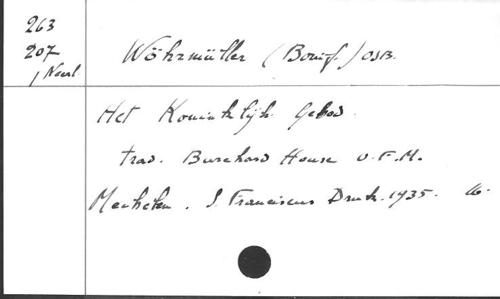 263
207
/ Neerl.
Wöhrmüller (Bonif.) OSB.
Het Koninklijk Gebod.
trad. Burchard House O.F.M.
Mechelen. S. Franciscus Druk. 1935.